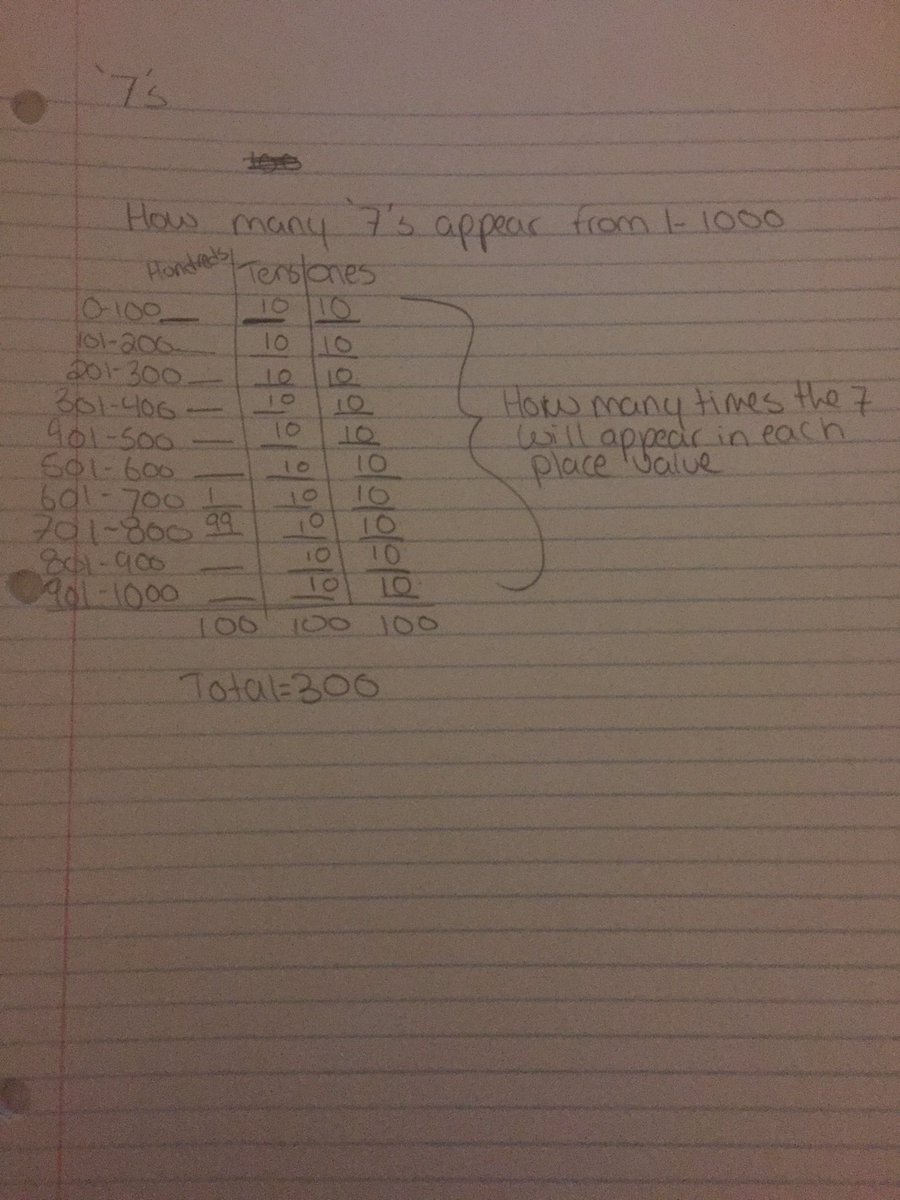 '7's
How many '7's appear from 1-1000
Hundreds Tens ones
0-100 __ 10 10
101-200 __ 10 10
201-300 __ 10 10
301-400 __ 10 10
901-500 __ 10 10
501-600 __ 10 10
601-700 1 10 10
701-800 99 10 10
801-900 __ 10 10
901-1000 __ 10 10
100 100 100
How many times the 7
will appear in each
place value
Total=300